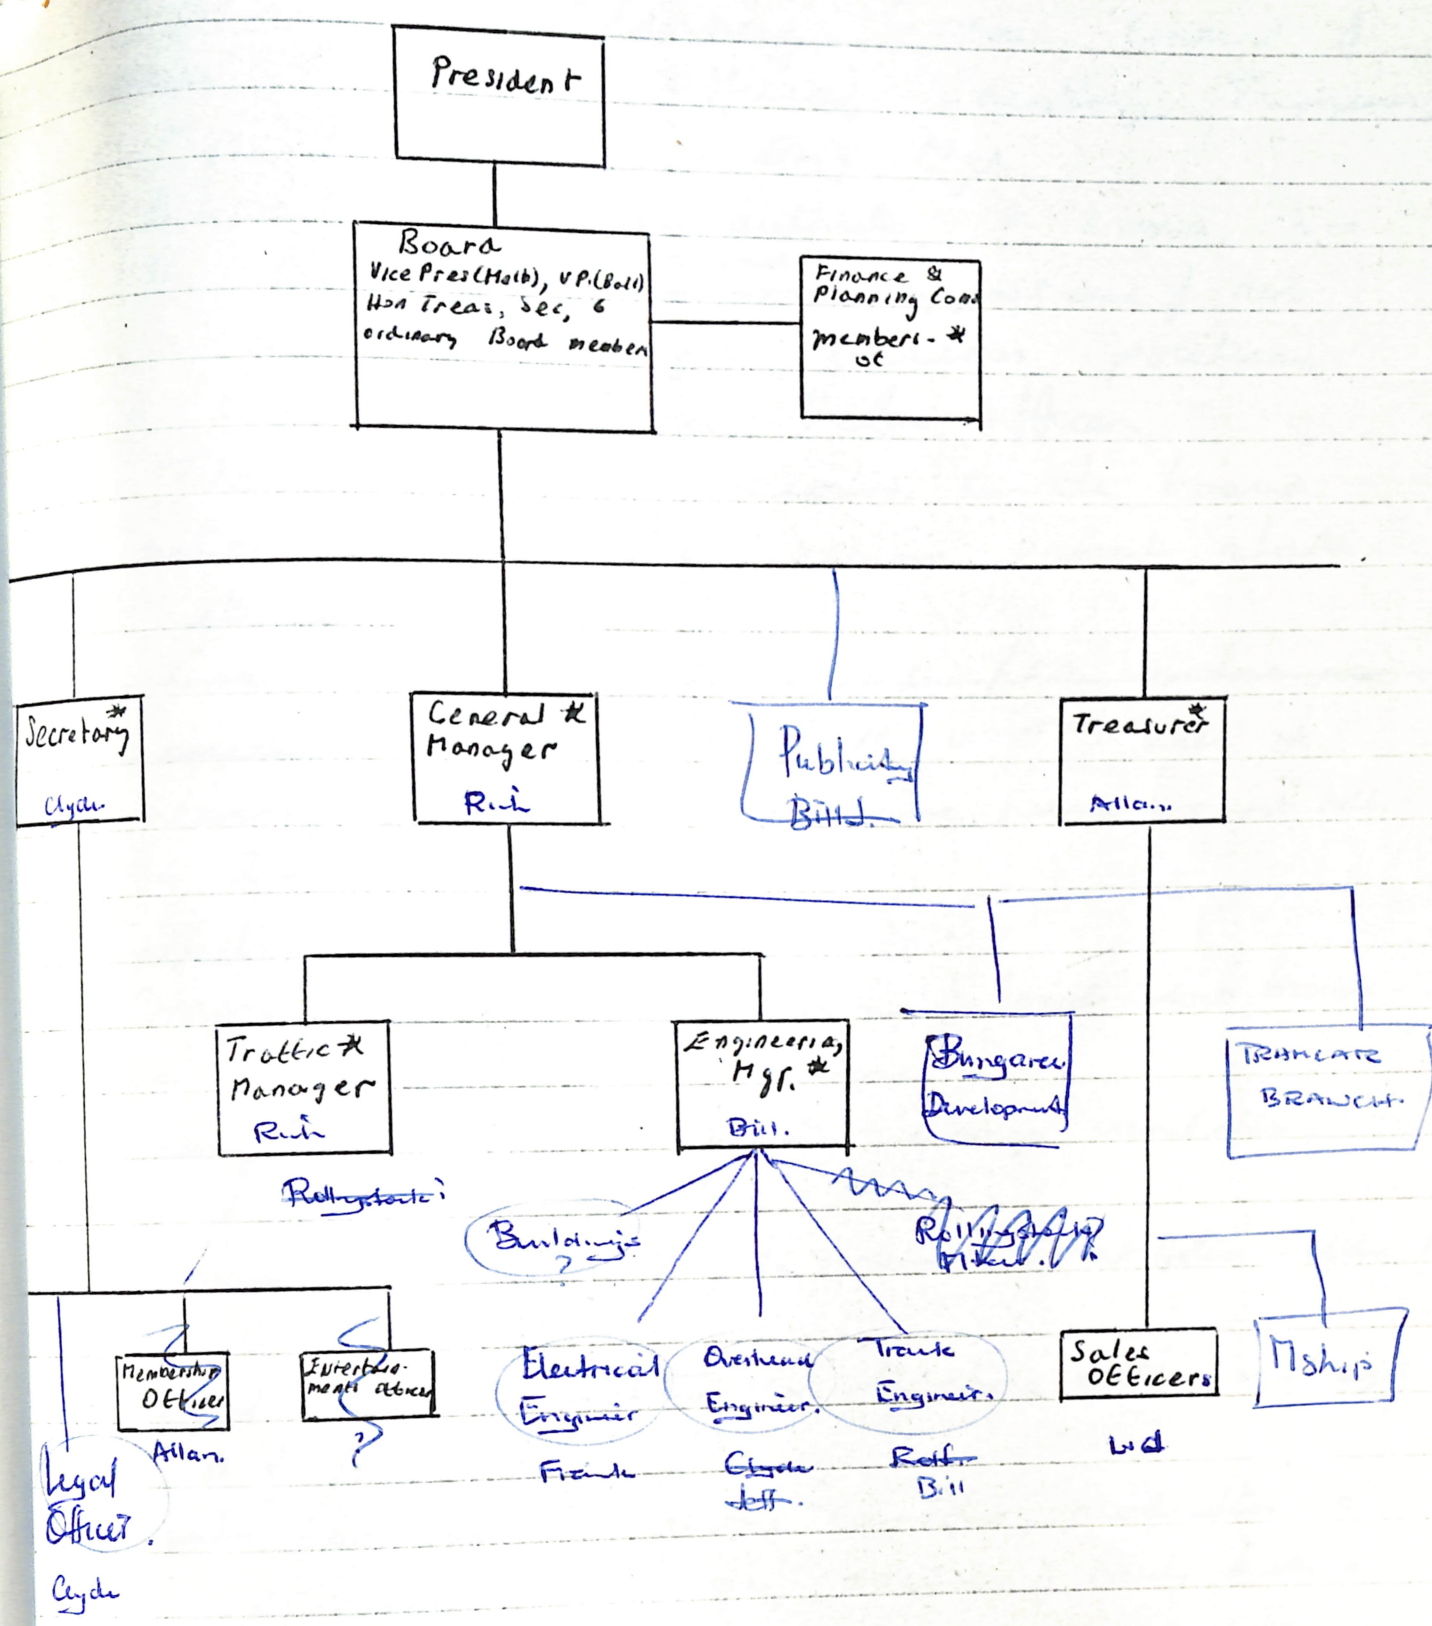 President
Board
Vice Pres(Melb), V P.(Ball)
Hon Treas, Sec, 6
ordinary Board members
Finance &
Planning Com
members - *
of
Secretary *
Clyde.
General *
Manager
Rich
Publicity
Bill J.
Treasurer *
Allan.
Traffic *
Manager
Rich
Engineering
Mgr. *
Bill.
Bungaree
Development
TRAMCARE
BRANCH.
Rollingstock ?
Buildings
?
Rollingstock ?
Membership
Officer
Allan.
Entertain-
ments officer
?
Electrical
Engineer
Frank
Overhead
Engineer.
Clyde
Jeff.
Track
Engineer.
Rolf.
Bill
Sales
Officers
Mship
Legal
Officer.
Clyde